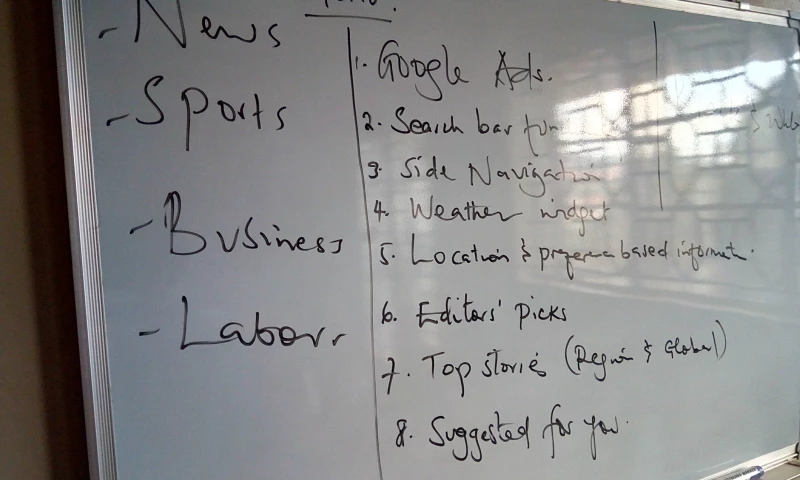 - News
- Sports
- Business
- Labour
1. Google Ads.
2. Search bar fun
3. Side Navigation
4. Weather widget
5. Location & preference based information.
6. Editors' picks
7. Top stories (Region & Global)
8. Suggested for you.